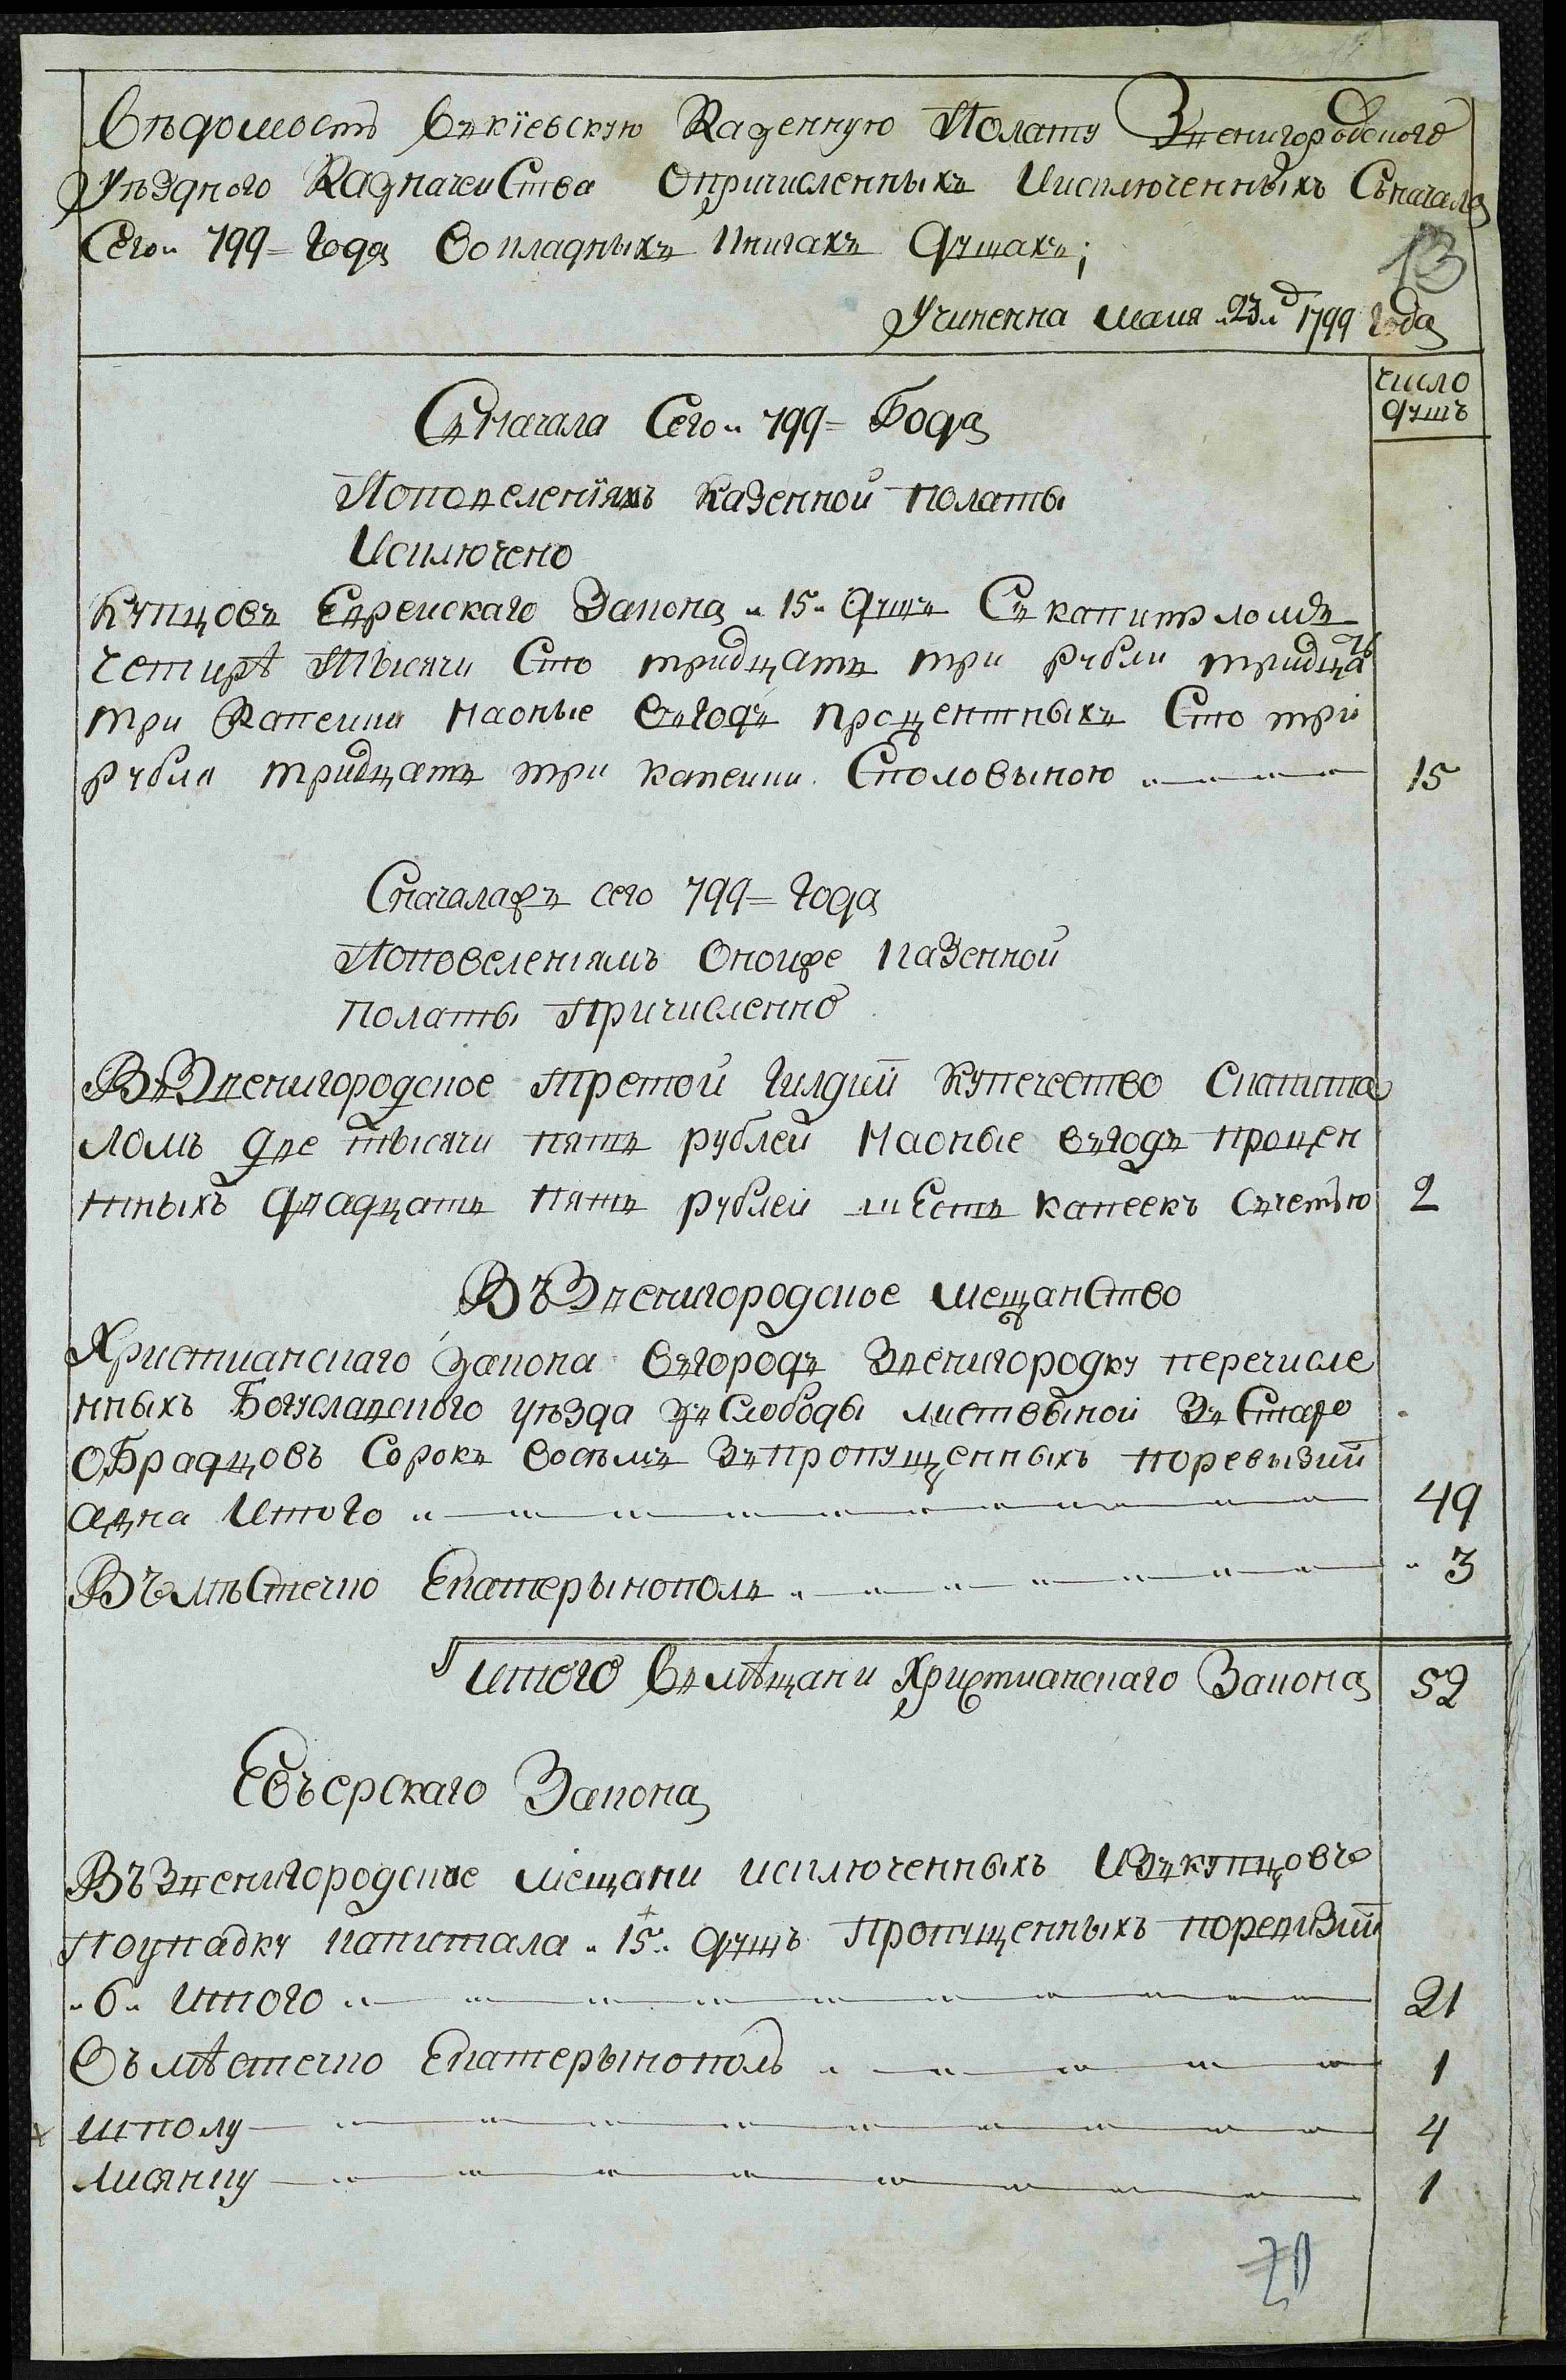 Вѣдомость Въкіевскую Казенную Полату Звенигородского
Уѣздного Казначейства Опричисленныхъ Иисключенныхъ Съначала
Сего 799 = Года Вокладныхъ Книгахъ Душахъ;
13
Учиненна маия 23 д 1799 Года
число
душъ
Съначала Сего 799 = Года
Поповелениямъ Казенной полаты
Исключено
Купцовъ Еврейскаго Закона 15 душъ Съ капиталомъ
Четирѣ Тысячи Сто тридцать три рубли тридцать
три Капейки Наоные Въгодъ процентныхъ Сто три
рубля тридцать три капейки Споловыною 15
Сначалажъ сего 799 = Года
Поповелениямъ Оноиже Казенной
Полаты Причисленно
ВъЗвенигородское третой Гилдии Купечество Скапита
ломъ две тысячи пять рублей Наоные въгодъ процен
тныхъ двадцать пять рублей шесть капеекъ Счетвю 2
ВъЗвенигородское мещанство
Християнскаго Закона Въгородъ Звенигородку перечисле
нныхъ Богуславского уѣзда зъСлободы листвыной ЗъСтаро
обрадцовъ Сорокъ восьмъ Зъпропущенныхъ поревызии
адна Итого 49
Въмѣстечко Екатерынополь 3
итого Въмѣщани Христианскаго Закона 52
Евъерскаго Закона
ВъЗвенигородские мещани исключенныхъ Изъкупцовъ
Поупадку капитала 15 душъ Пропущенныхъ поревизии
6 Итого 21
Въ мѣстечко Екатерынополь 1
шполу 4
Лисянку 1
20